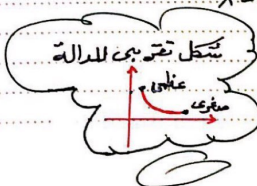 شكل تقريبي للدالة
عظمى
صغرى